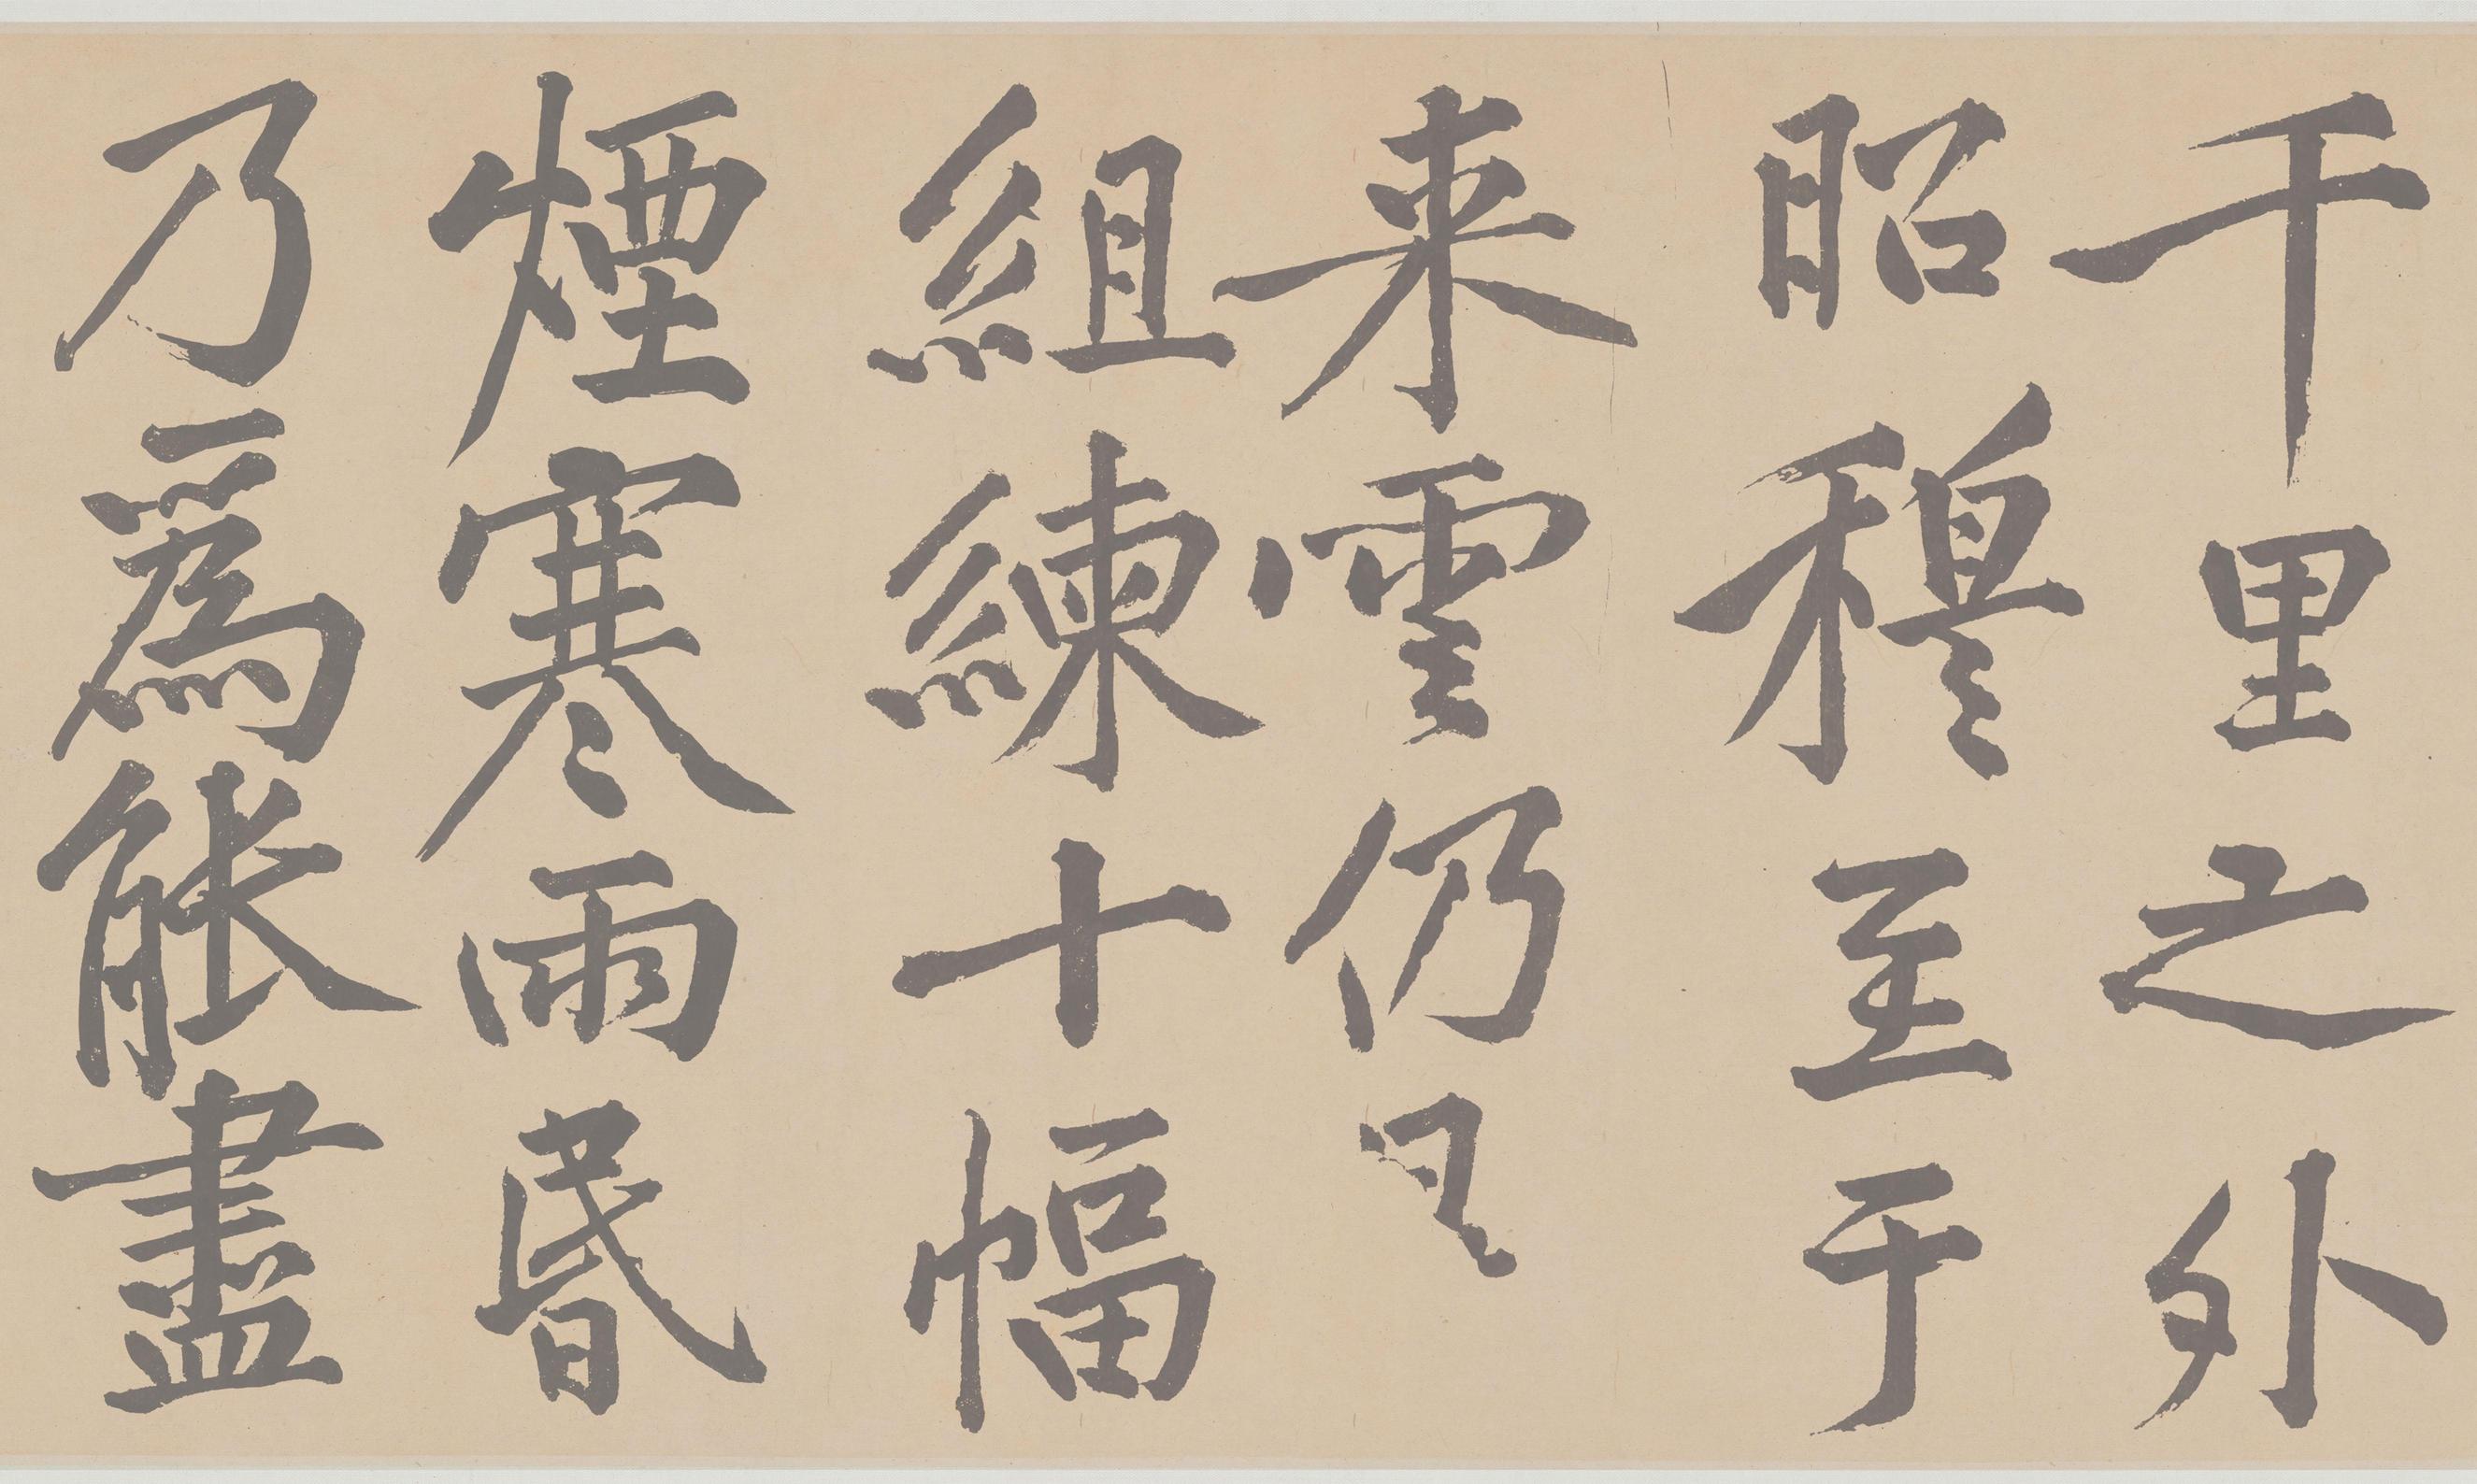 千里之外
昭穆至于
来雲仍
組練十幅
煙寒雨昬
乃爲能盡